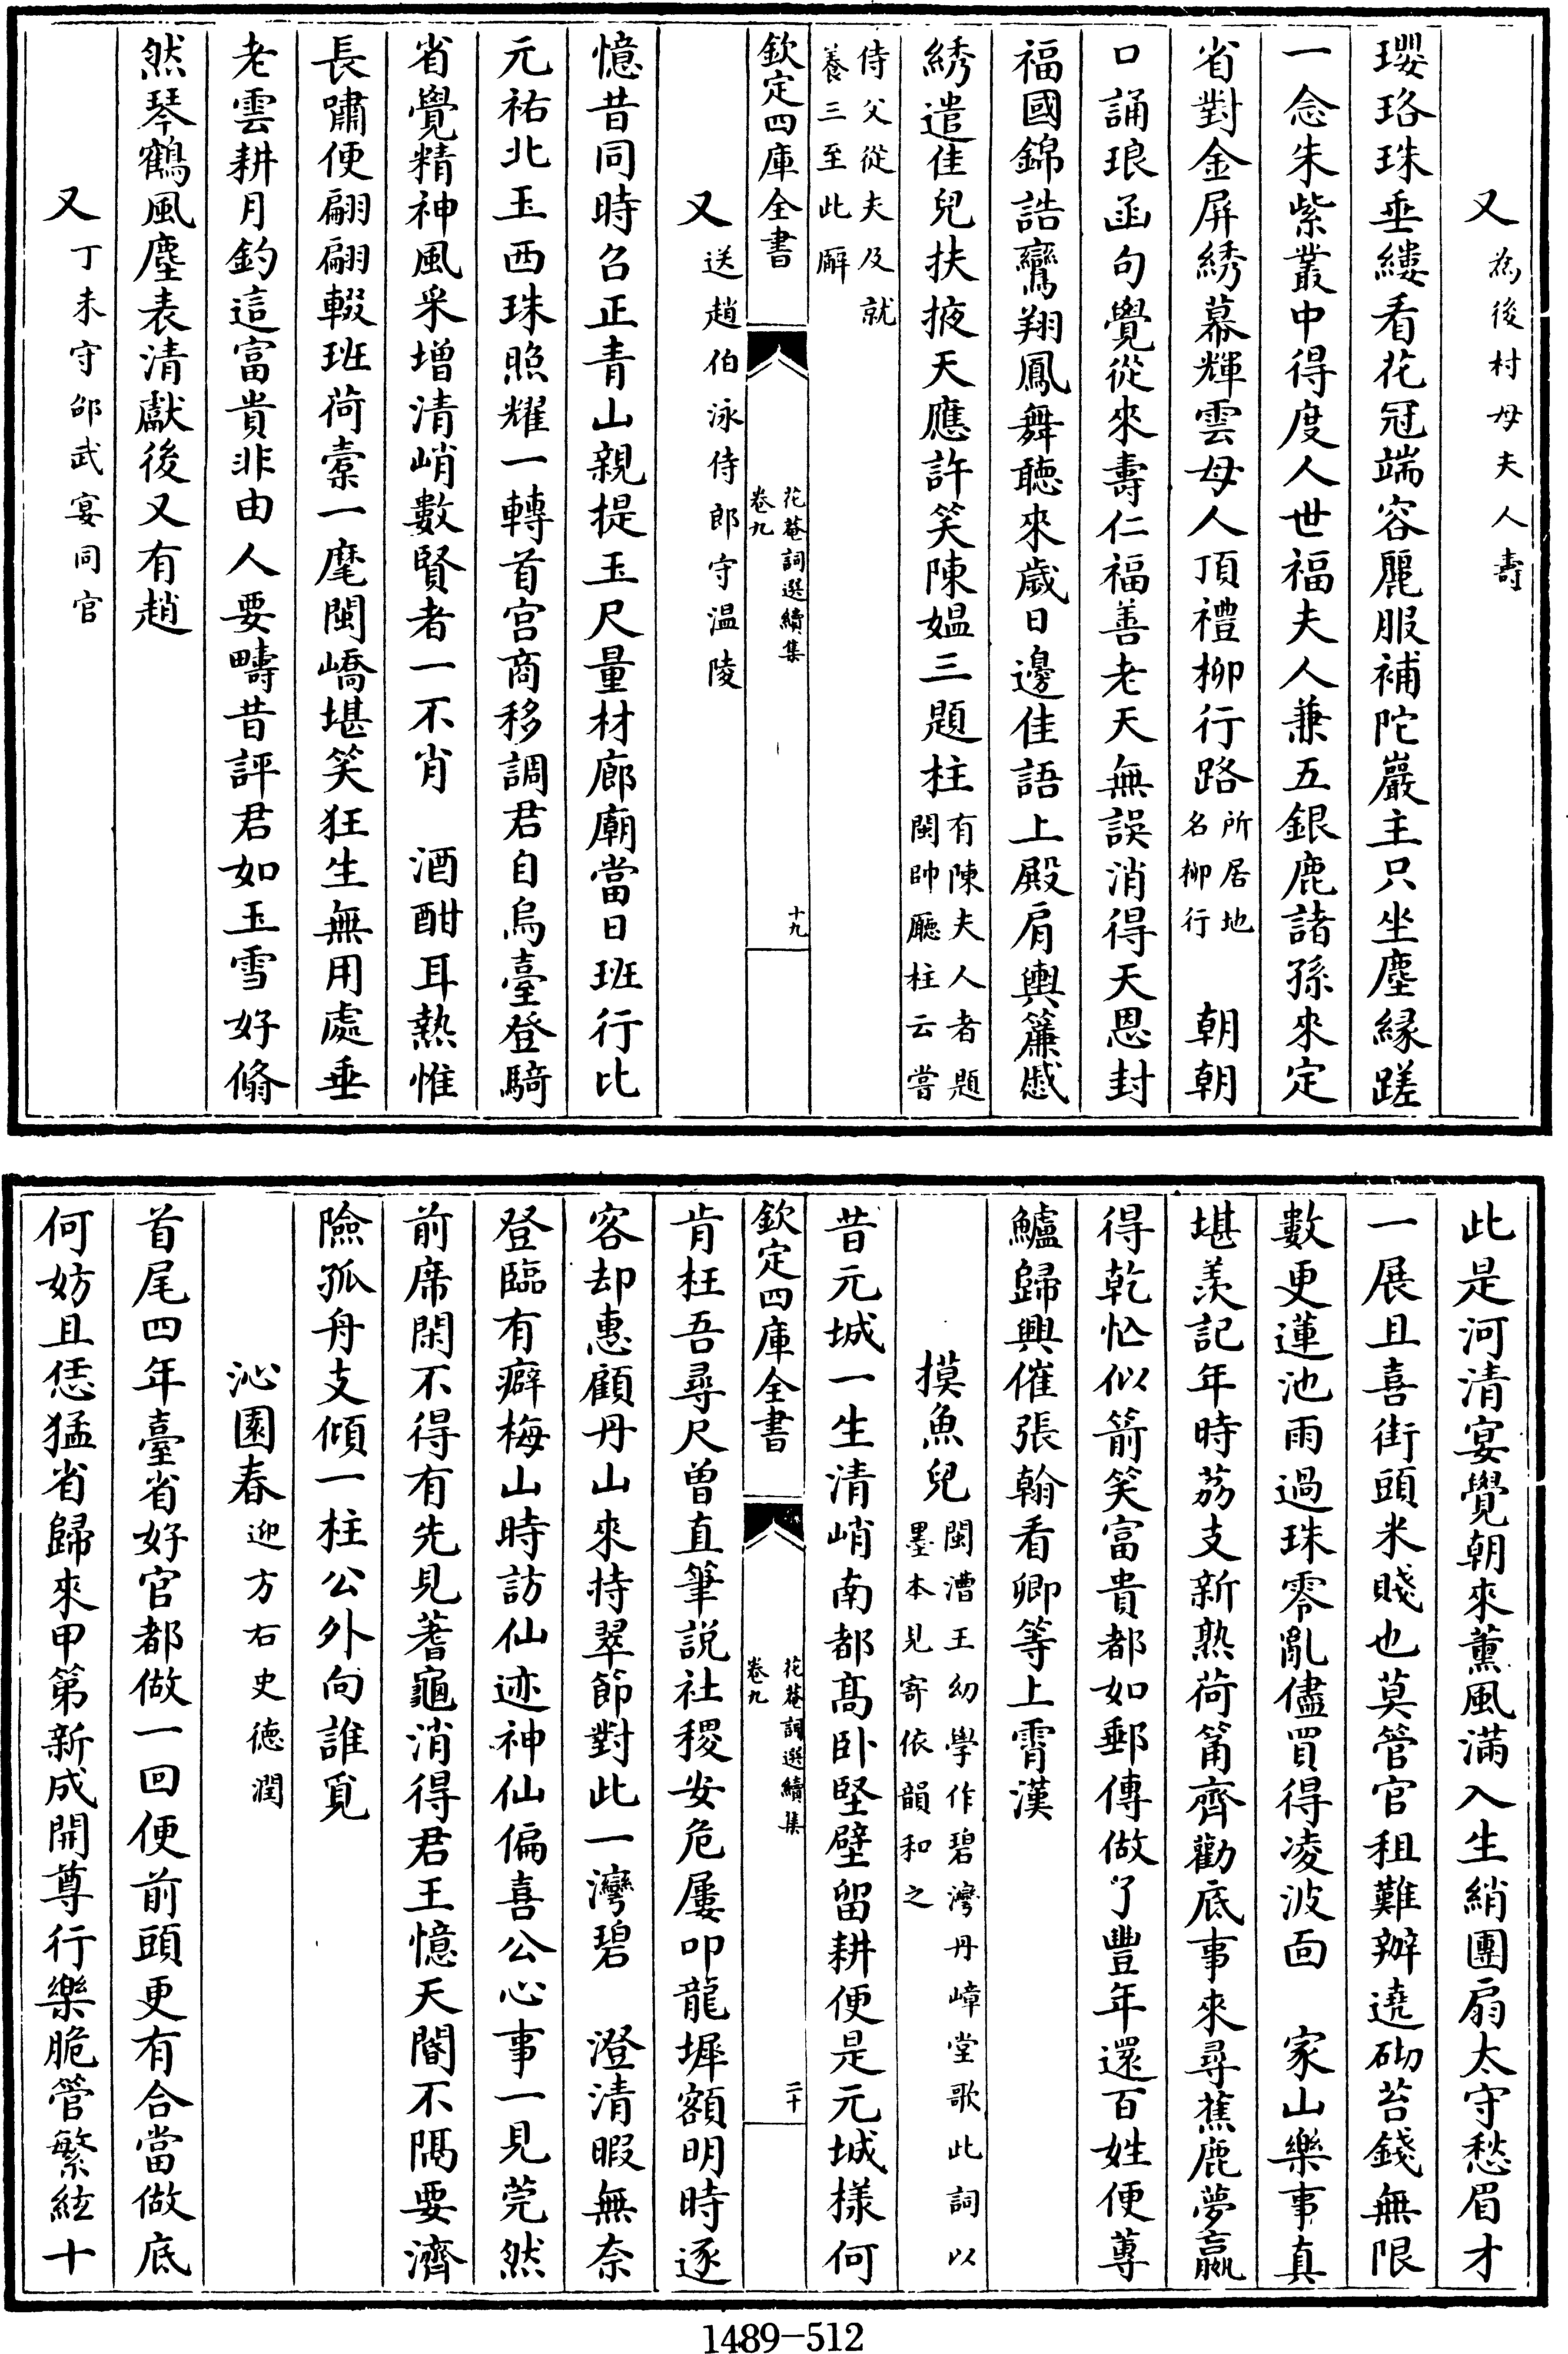 又為後村母夫人壽
瓔珞珠垂縷看花冠端容麗服補陀巖主只坐塵緣蹉
一念朱紫叢中得度人世福夫人兼五銀鹿諸孫來定
省對金屏綉幕輝雲母人頂禮柳行路所居地名柳行　朝朝
口誦琅函句覺從來壽仁福善老天無誤消得天恩封
福國錦誥鸞翔鳳舞聽來歲日邊佳語上殿肩輿簾戚
綉遣佳兒扶掖天應許笑陳媪三題柱有陳夫人者題閩帥廳柱云嘗
侍父從夫及就養三至此廨
欽定四庫全書
花菴詞選續集
卷九
十九
又送趙伯泳侍郎守温陵
憶昔同時召正青山親提玉尺量材廊廟當日班行比
元祐北玉西珠照耀一轉首宫商移調君自烏臺登騎
省覺精神風采增清峭數賢者一不肖　酒酣耳熱惟
長嘯便翩翩輟班荷橐一麾閩嶠堪笑狂生無用處垂
老雲耕月釣這富貴非由人要疇昔評君如玉雪好翛
然琴鶴風塵表清獻後又有趙
又丁未守邵武宴同官
此是河清宴覺朝來薰風滿入生綃團扇太守愁眉才
一展且喜街頭米賤也莫管官租難辦遶砌苔錢無限
數更蓮池雨過珠零亂儘買得凌波面　家山樂事真
堪羨記年時荔支新熟荷筩齊勸底事來尋蕉鹿夢贏
得乾忙似箭笑富貴都如郵傳做了豐年還百姓便蓴
鱸歸興催張翰看卿等上霄漢
摸魚兒閩漕王幼學作碧灣丹嶂堂歌此詞以墨本見寄依韻和之
昔元城一生清峭南都髙卧堅壁留耕便是元城様何
欽定四庫全書
花菴詞選續集
卷九
二十
肯枉吾尋尺曽直筆説社稷安危屢叩龍墀額明時逐
客却惠顧丹山來持翠節對此一灣碧　澄清暇無奈
登臨有癖梅山時訪仙迹神仙偏喜公心事一見莞然
前席閑不得有先見蓍龜消得君王憶天閽不隔要濟
險孤舟支傾一柱公外向誰覓
沁園春迎方右史德潤
首尾四年臺省好官都做一回便前頭更有合當做底
何妨且恁猛省歸來甲第新成開尊行樂脆管繁絃十
1489-512